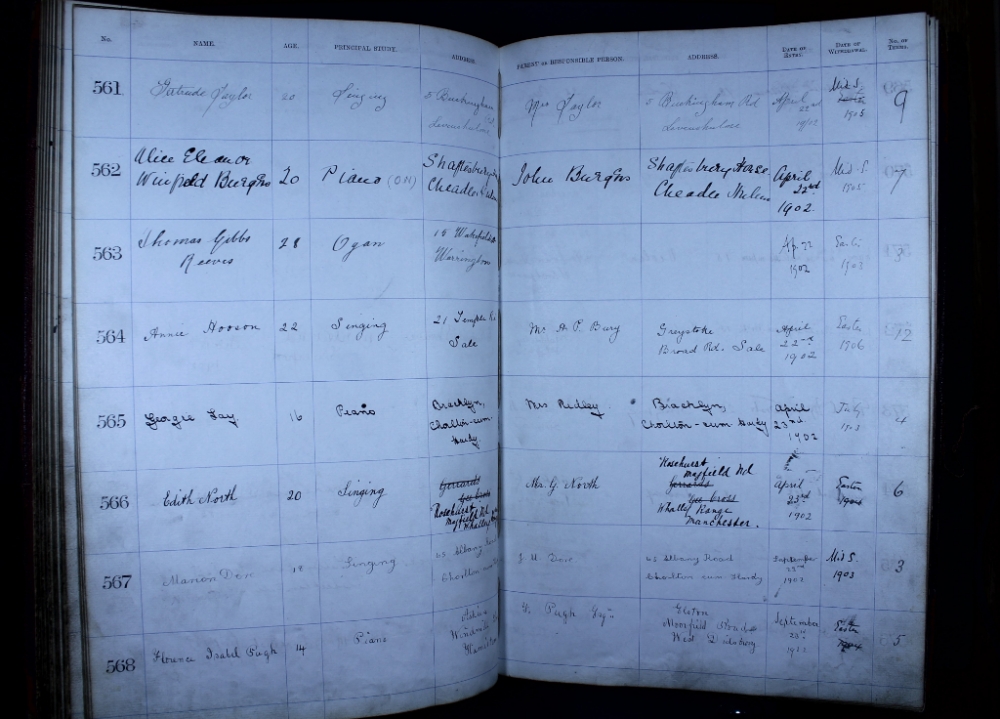 No.
NAME.
AGE.
PRINCIPAL STUDY.
ADDRESS.
PARENT OR RESPONSIBLE PERSON.
ADDRESS.
DATE OF
ENTRY.
DATE OF
WITHDRAWAL.
No. OF
TERMS.
561
Gertrude Taylor
20
Singing
5 Buckingham
Rd
Levenshulme
Mrs Taylor
5 Buckingham Rd
Levenshulme
April
22nd
1902
Mid S.
1905
9
562
Alice Eleanor
Winifred Burghs
20
Piano
Shaftesbury
Cheadle
John Burghs
Shaftesbury House
Cheadle
April
22nd
1902.
Mid S.
1905
7
563
Thomas Gibbs
Reeves
28
Ogan
Warrington
Ap 22
1902
1903
3
564
Annie Hooson
22
Singing
21 Temple
Sale
Mr A P. Bury
Greystoke
Broad Rd. Sale
April
22nd
1902
Easter
1906
12
565
Georgie Fay
16
Piano
Bracklyn,
Chorlton-cum-
Hardy.
Mrs Ridley
Bracklyn,
Chorlton-cum-Hardy
April
23rd
1902
July
1903
4
566
Edith North
20
Singing
Gerrards
Gee Cross
Rosehurst
Mayfield Rd
Whalley
Mr G North
Rosehurst
Mayfield Rd
Gerrards
Gee Cross
Whalley Range
Manchester.
April
23rd
1902
Easter
1904
6
567
Marion Dore
18
Singing
25 Albany Road
Chorlton
Dore
25 Albany Road
Chorlton cum Hardy
September
1902
Mid S.
1903
3
568
Florence Isabel Pugh
14
Piano
Pugh Esq
Moorfield Road
West Didsbury
September
Easter
1904
5